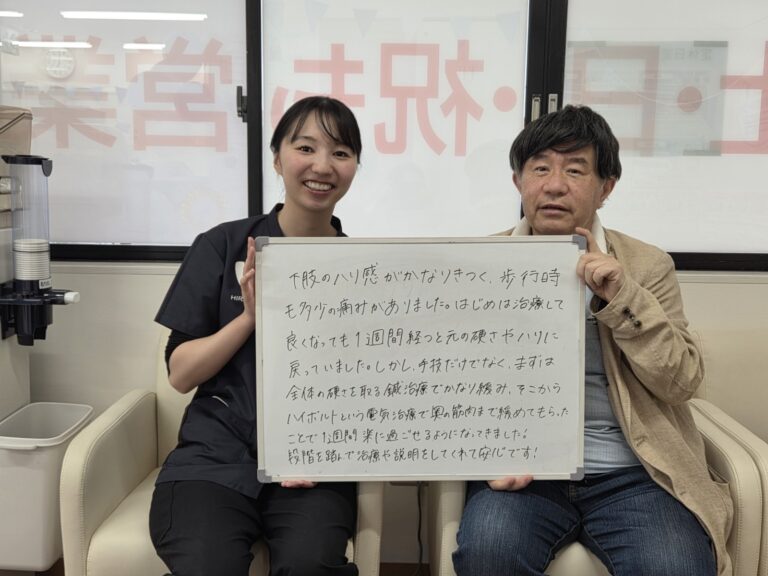 土・日・祝も営業
HIRO
下肢のハリ感がかなりきつく、歩行時
も多少の痛みがありました。はじめは治療して
良くなっても1週間経つと元の硬さやハリに
戻っていました。しかし、手技だけでなく、まずは
全体の硬さを取る鍼治療でかなり緩み、そこから
ハイボルトという電気治療で奥の筋肉まで緩めてもらった
ことで1週間楽に過ごせるようになってきました!
段階を踏んで治療や説明をしてくれて安心です!